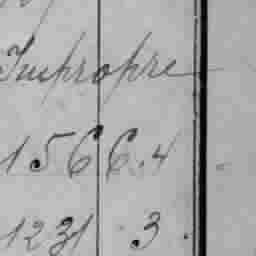 Impropre
1566.4
1231 3.